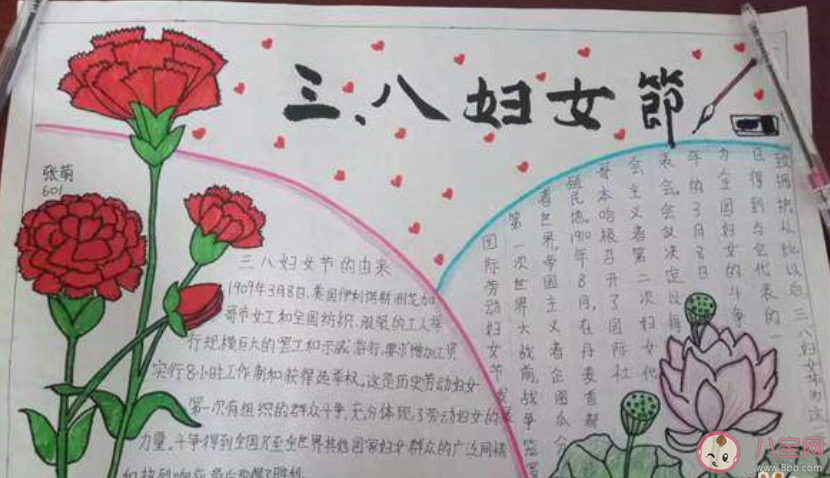 三、八妇女節
张萌
601
三八妇女节的由来
1909年3月8日，美国伊利诺斯洲芝加
哥市女工和全国纺织、服装的工人举
行规模巨大的罢工和示威游行，要求增加工资
实行8小时工作制和获得选举权。这是历史劳动妇女
第一次有组织的群众斗争，充分体现了劳动妇女的
力量。斗争得到全国乃至全世界其他国家妇女群众的广泛同情
和热烈响应，最后取得了胜利。
国际劳动妇女节发展
第一次世界大战前，战争笼罩
着世界，帝国主义者企图瓜分
殖民地。1910年8月，在丹麦首都
哥本哈根召开了国际社
会主义者第二次妇女代
表会。会议决定以每
年的3月8日
为全国妇女的斗争
日得到与会代表的一
致拥护从此以后，三八妇女节为
八宝网
www.8bb.com